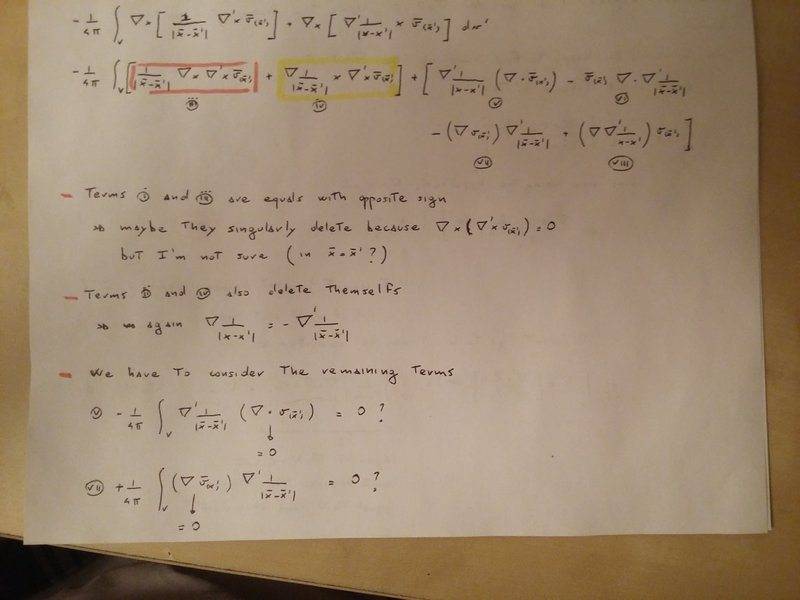 - 1/4π ∫_V ∇ × [ 1/|x̄-x̄'| ∇' × v̄(x̄') ] + ∇ × [ ∇' 1/|x-x'| × v̄(x̄') ] dx'
- 1/4π ∫_V [ [ 1/|x̄-x̄'| ∇ × ∇' × v̄(x̄') ] + ∇ 1/|x̄-x̄'| × ∇' × v̄(x̄') ] + [ ∇' 1/|x-x'| (∇ · v̄(x̄')) - v̄(x̄') ∇ · ∇' 1/|x̄-x̄'|
iii iv v vi
- (∇ v(x̄')) ∇' 1/|x̄-x̄'| + (∇ ∇' 1/x-x') v(x̄') ]
vii viii
- Terms i and iii are equals with opposite sign
⇒ maybe they singularly delete because ∇ × (∇' × v(x̄')) = 0
but I'm not sure (in x̄ = x̄' ?)
- Terms ii and iv also delete themselfs
⇒ again ∇ 1/|x-x'| = - ∇' 1/|x̄-x̄'|
- We have to consider the remaining terms
v - 1/4π ∫_V ∇' 1/|x̄-x̄'| (∇ · v(x̄')) = 0 ?
↓
= 0
vii + 1/4π ∫_V (∇ v̄(x̄')) ∇' 1/|x̄-x̄'| = 0 ?
↓
= 0